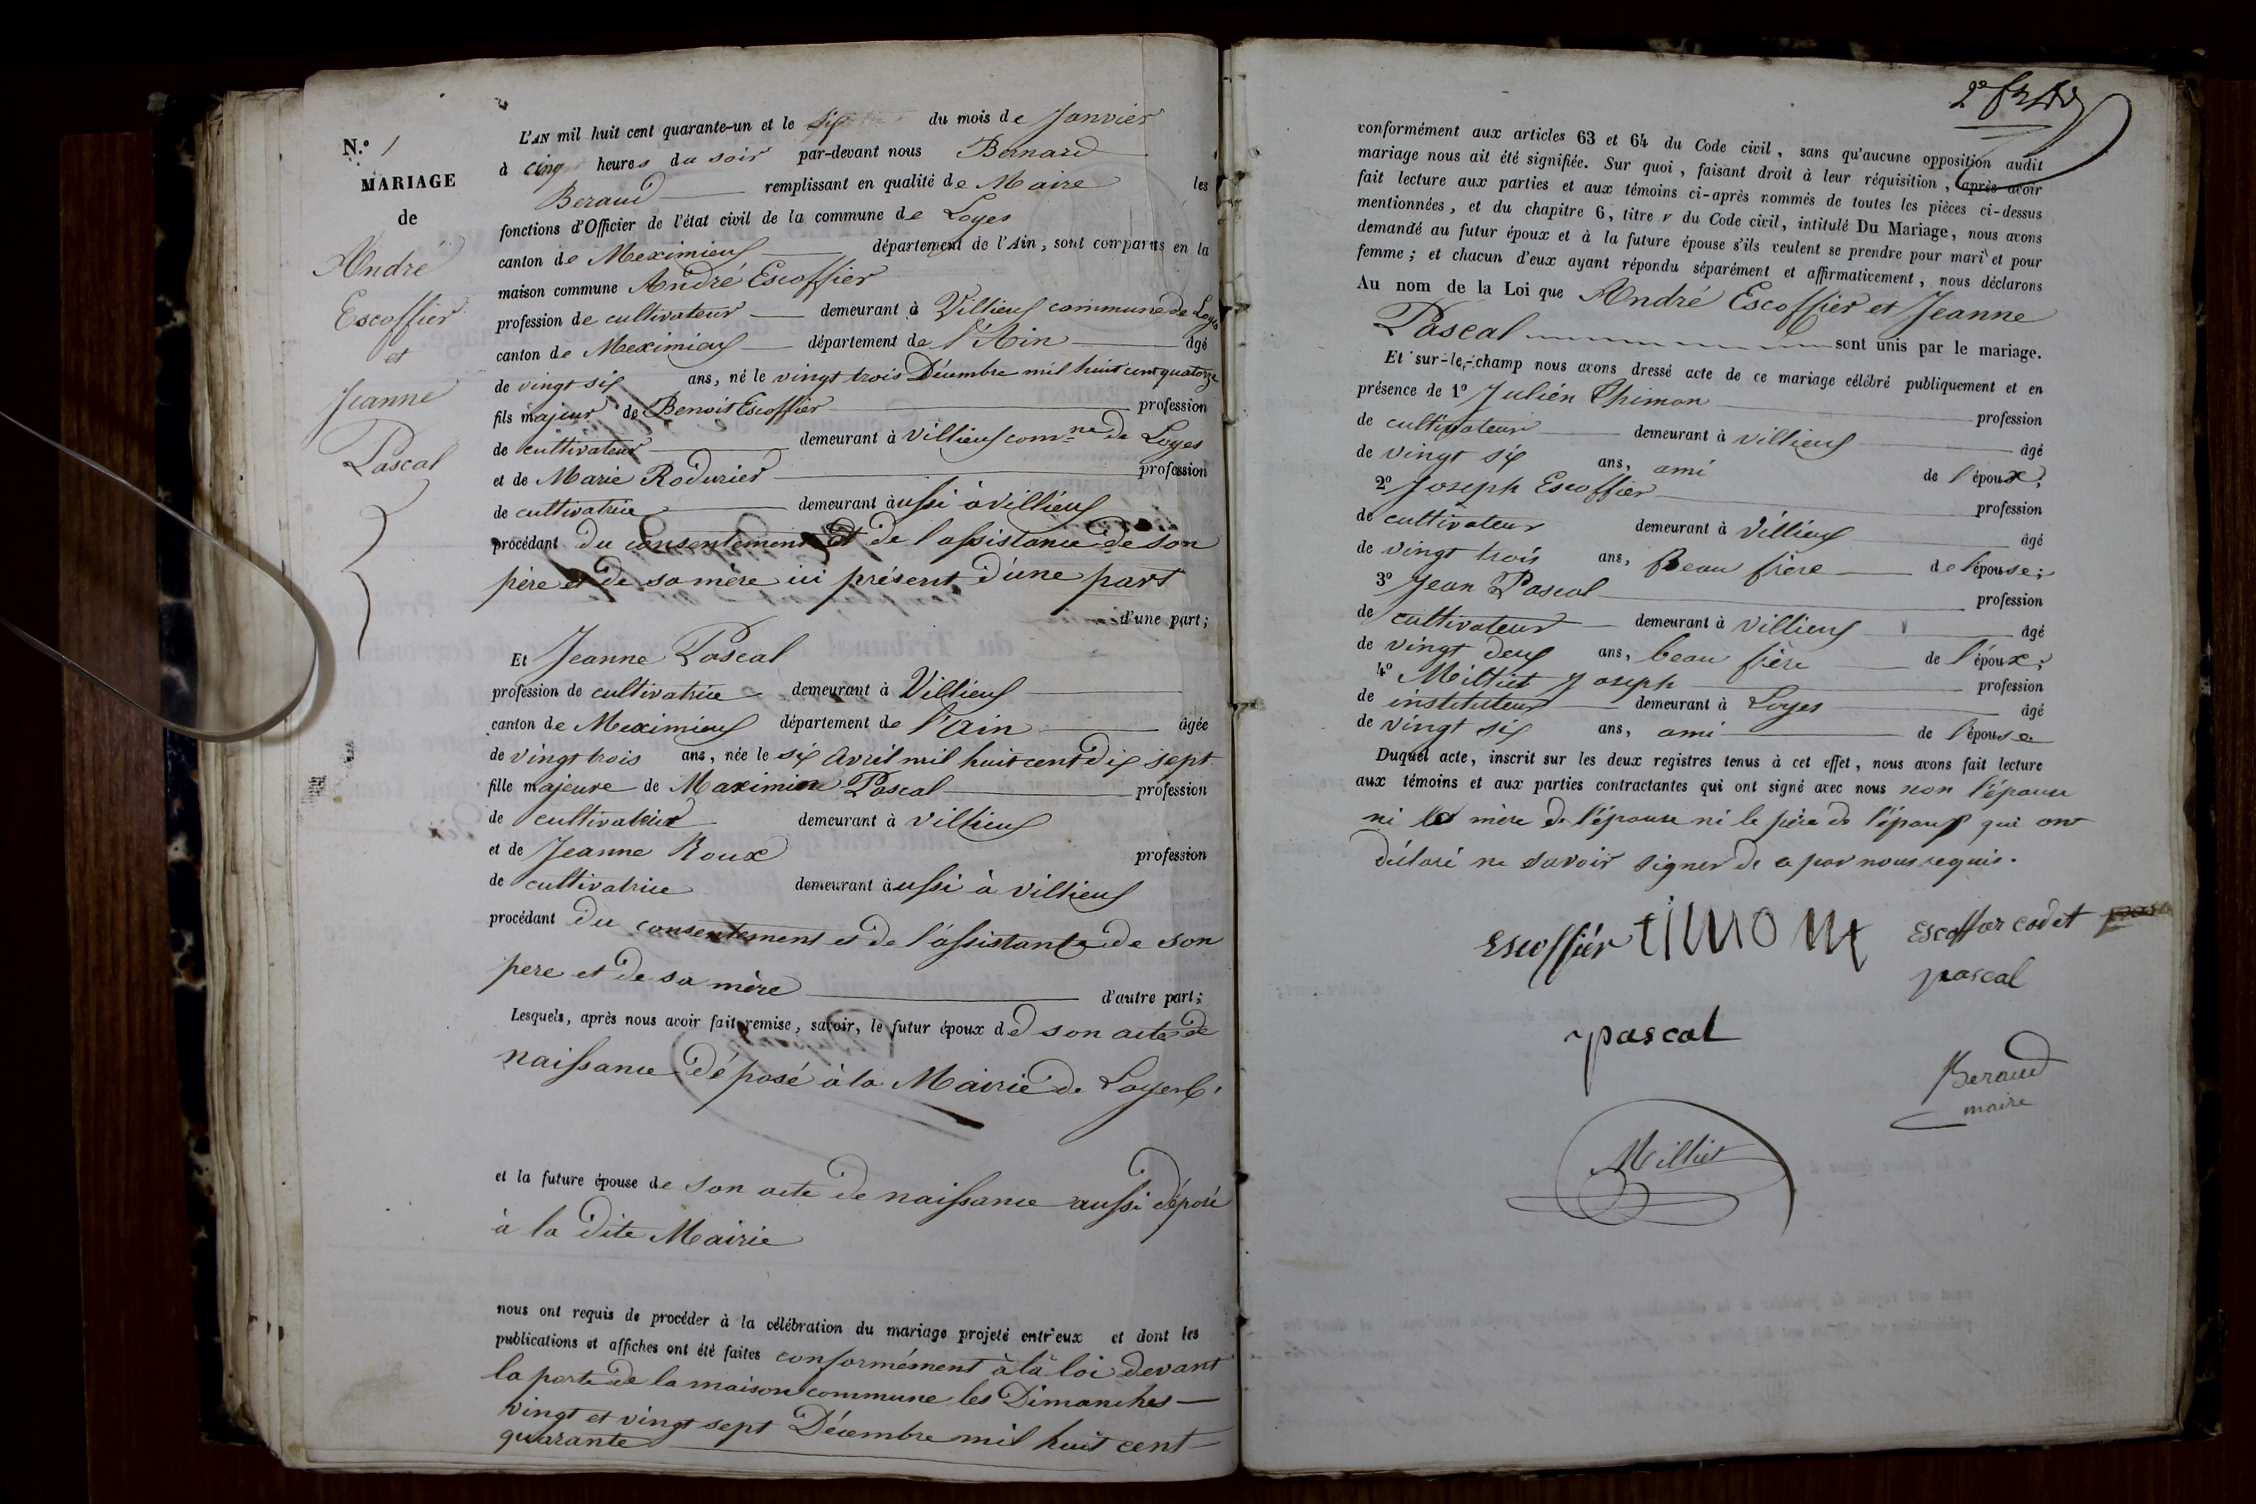 N.º 1
MARIAGE
de
André
Escoffier
et
Jeanne
Pascal
L'AN mil huit cent quarante-un et le six du mois de Janvier
à cinq heures du soir par-devant nous Bernard
Beraud remplissant en qualité de Maire les
fonctions d'Officier de l'état civil de la commune de Loyes
canton de Meximieux département de l'Ain, sont comparus en la
maison commune André Escoffier
profession de cultivateur demeurant à Villieux commune de Loyes
canton de Meximieux département de l'Ain âgé
de vingt six ans, né le vingt trois Décembre mil huit cent quatorze
fils majeur de Benoit Escoffier profession
de cultivateur demeurant à Villieux comne de Loyes
et de Marie Rodurier profession
de cultivatrice demeurant àussi à villieux
procédant du consentement et de l'assistance de son
père et de sa mère ici présent d'une part
d'une part;
Et Jeanne Pascal
profession de cultivatrice demeurant à Villieux
canton de Meximieux département de l'Ain âgée
de vingt trois ans, née le six avril mil huit cent dix sept
fille majeure de Maximine Pascal profession
de cultivateur demeurant à villieux
et de Jeanne Roux profession
de cultivatrice demeurant àussi à villieux
procédant du consentement et de l'assistante de son
pere et de sa mère d'autre part;
Lesquels, après nous avoir fait remise, savoir, le futur époux de son acte de
naissance déposé à la Mairie de Loyes
et la future épouse de son acte de naissance aussi déposé
à la dite Mairie
nous ont requis de procéder à la célébration du mariage projeté entr'eux et dont les
publications et affiches ont été faites conformément à la loi devant
la porte de la maison commune les Dimanches
vingt et vingt sept Décembre mil huit cent
quarante
conformément aux articles 63 et 64 du Code civil, sans qu'aucune opposition audit
mariage nous ait été signifiée. Sur quoi, faisant droit à leur réquisition, après avoir
fait lecture aux parties et aux témoins ci-après nommés de toutes les pièces ci-dessus
mentionnées, et du chapitre 6, titre v du Code civil, intitulé Du Mariage, nous avons
demandé au futur époux et à la future épouse s'ils veulent se prendre pour mari et pour
femme; et chacun d'eux ayant répondu séparément et affirmativement, nous déclarons
Au nom de la Loi que André Escoffier et Jeanne
Pascal sont unis par le mariage.
Et sur-le-champ nous avons dressé acte de ce mariage célébré publiquement et en
présence de 1º Julien Thimon profession
de cultivateur demeurant à villieux âgé
de vingt six ans, ami de l'époux;
2º Joseph Escoffier profession
de cultivateur demeurant à Villieux âgé
de vingt trois ans, Beau frère de l'épouse;
3º Jean Pascal profession
de cultivateur demeurant à villieux âgé
de vingt deux ans, beau frère de l'époux;
4º Milliet Joseph profession
de instituteur demeurant à Loyes âgé
de vingt six ans, ami de l'épouse
Duquel acte, inscrit sur les deux registres tenus à cet effet, nous avons fait lecture
aux témoins et aux parties contractantes qui ont signé avec nous non l'épouse
ni la mère de l'épouse ni le père de l'époux qui ont
déclaré ne savoir signer de ce par nous requis.
Escoffier timont Escoffier cadet
pascal
pascal
Beraud
maire
Milliet